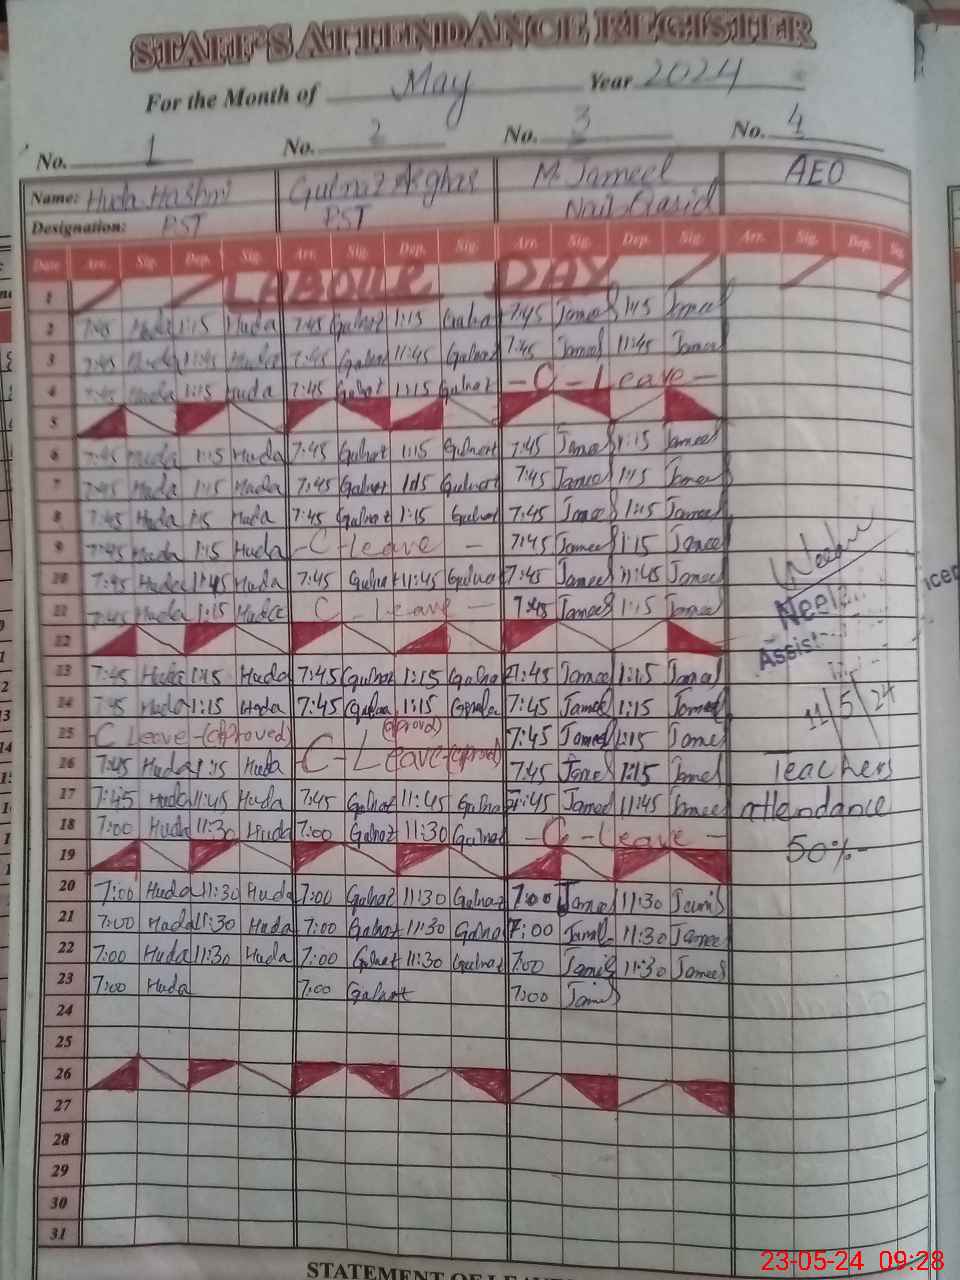 STAFF'S ATTENDANCE REGISTER
For the Month of May Year 2024
No. 1 No. 2 No. 3 No. 4
Name: Huda Hashmi Gulnaz Asghar M. Jameel AEO
Designation: PST PST Naib Qasid
Date Arr. Sig. Dep. Sig. Arr. Sig. Dep. Sig. Arr. Sig. Dep. Sig. Arr. Sig. Dep. Sig.
1 LABOUR DAY
2 7:45 Huda 1:15 Huda 7:45 Gulnaz 1:15 Gulnaz 7:45 Jameel 1:15 Jameel
3 7:45 Huda 11:45 Huda 7:45 Gulnaz 11:45 Gulnaz 7:45 Jameel 11:45 Jameel
4 7:45 Huda 1:15 Huda 7:45 Gulnaz 1:15 Gulnaz - C - Leave -
5
6 7:45 Huda 1:15 Huda 7:45 Gulnaz 1:15 Gulnaz 7:45 Jameel 1:15 Jameel
7 7:45 Huda 1:15 Huda 7:45 Gulnaz 1:15 Gulnaz 7:45 Jameel 1:15 Jameel
8 7:45 Huda 1:15 Huda 7:45 Gulnaz 1:15 Gulnaz 7:45 Jameel 1:15 Jameel
9 7:45 Huda 1:15 Huda - C - Leave - 7:45 Jameel 1:15 Jameel
10 7:45 Huda 11:45 Huda 7:45 Gulnaz 11:45 Gulnaz 7:45 Jameel 11:45 Jameel
11 7:45 Huda 1:15 Huda C - Leave - 7:45 Jameel 1:15 Jameel
12
13 7:45 Huda 1:15 Huda 7:45 Gulnaz 1:15 Gulnaz 7:45 Jameel 1:15 Jameel
14 7:45 Huda 1:15 Huda 7:45 Gulnaz 1:15 Gulnaz 7:45 Jameel 1:15 Jameel
11/5/24
15 C Leave - (aproved) (aproved) 7:45 Jameel 1:15 Jameel
16 7:45 Huda 1:15 Huda - C - Leave (aproved) 7:45 Jameel 1:15 Jameel Teachers
17 7:45 Huda 11:45 Huda 7:45 Gulnaz 11:45 Gulnaz 7:45 Jameel 11:45 Jameel attendance
18 7:00 Huda 11:30 Huda 7:00 Gulnaz 11:30 Gulnaz - C - Leave - 50%
19
20 7:00 Huda 11:30 Huda 7:00 Gulnaz 11:30 Gulnaz 7:00 Jameel 11:30 Jameel
21 7:00 Huda 11:30 Huda 7:00 Gulnaz 11:30 Gulnaz 7:00 Jameel 11:30 Jameel
22 7:00 Huda 11:30 Huda 7:00 Gulnaz 11:30 Gulnaz 7:00 Jameel 11:30 Jameel
23 7:00 Huda 7:00 Gulnaz 7:00 Jameel
24
25
26
27
28
29
30
31
STATEMENT OF
23-05-24 09:28